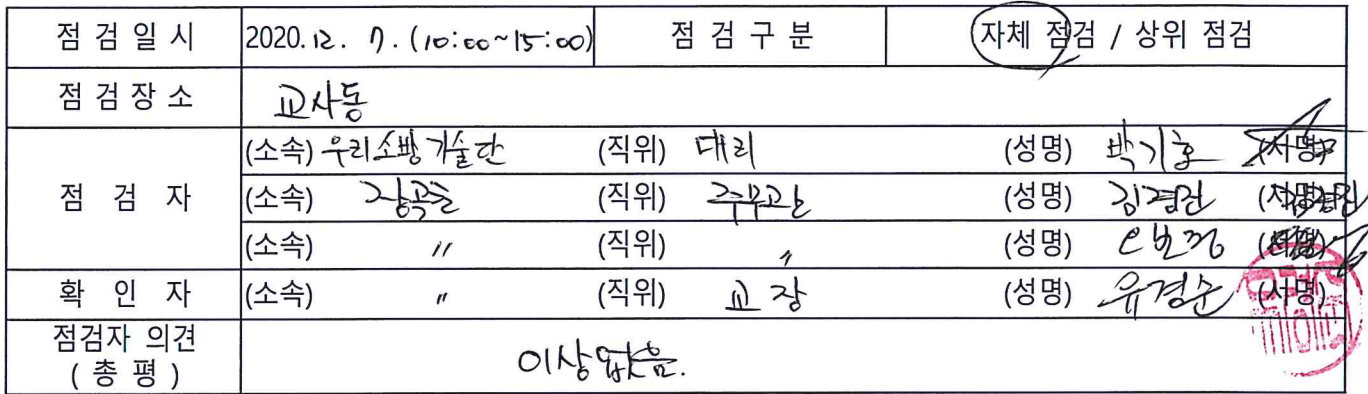 점 검 일 시 2020. 12. 7. (10:00~15:00) 점 검 구 분 자체 점검 / 상위 점검
점 검 장 소 교사동
(소속) 우리소방기술단 (직위) 대리 (성명) 박기호 (서명)
점 검 자 (소속) 장곡중 (직위) 주무관 (성명) 김경진 (서명)
(소속) 〃 (직위) 〃 (성명) (서명)
확 인 자 (소속) 〃 (직위) 교장 (성명) 유경순 (서명)
점검자 의견
( 총 평 ) 이상없음.